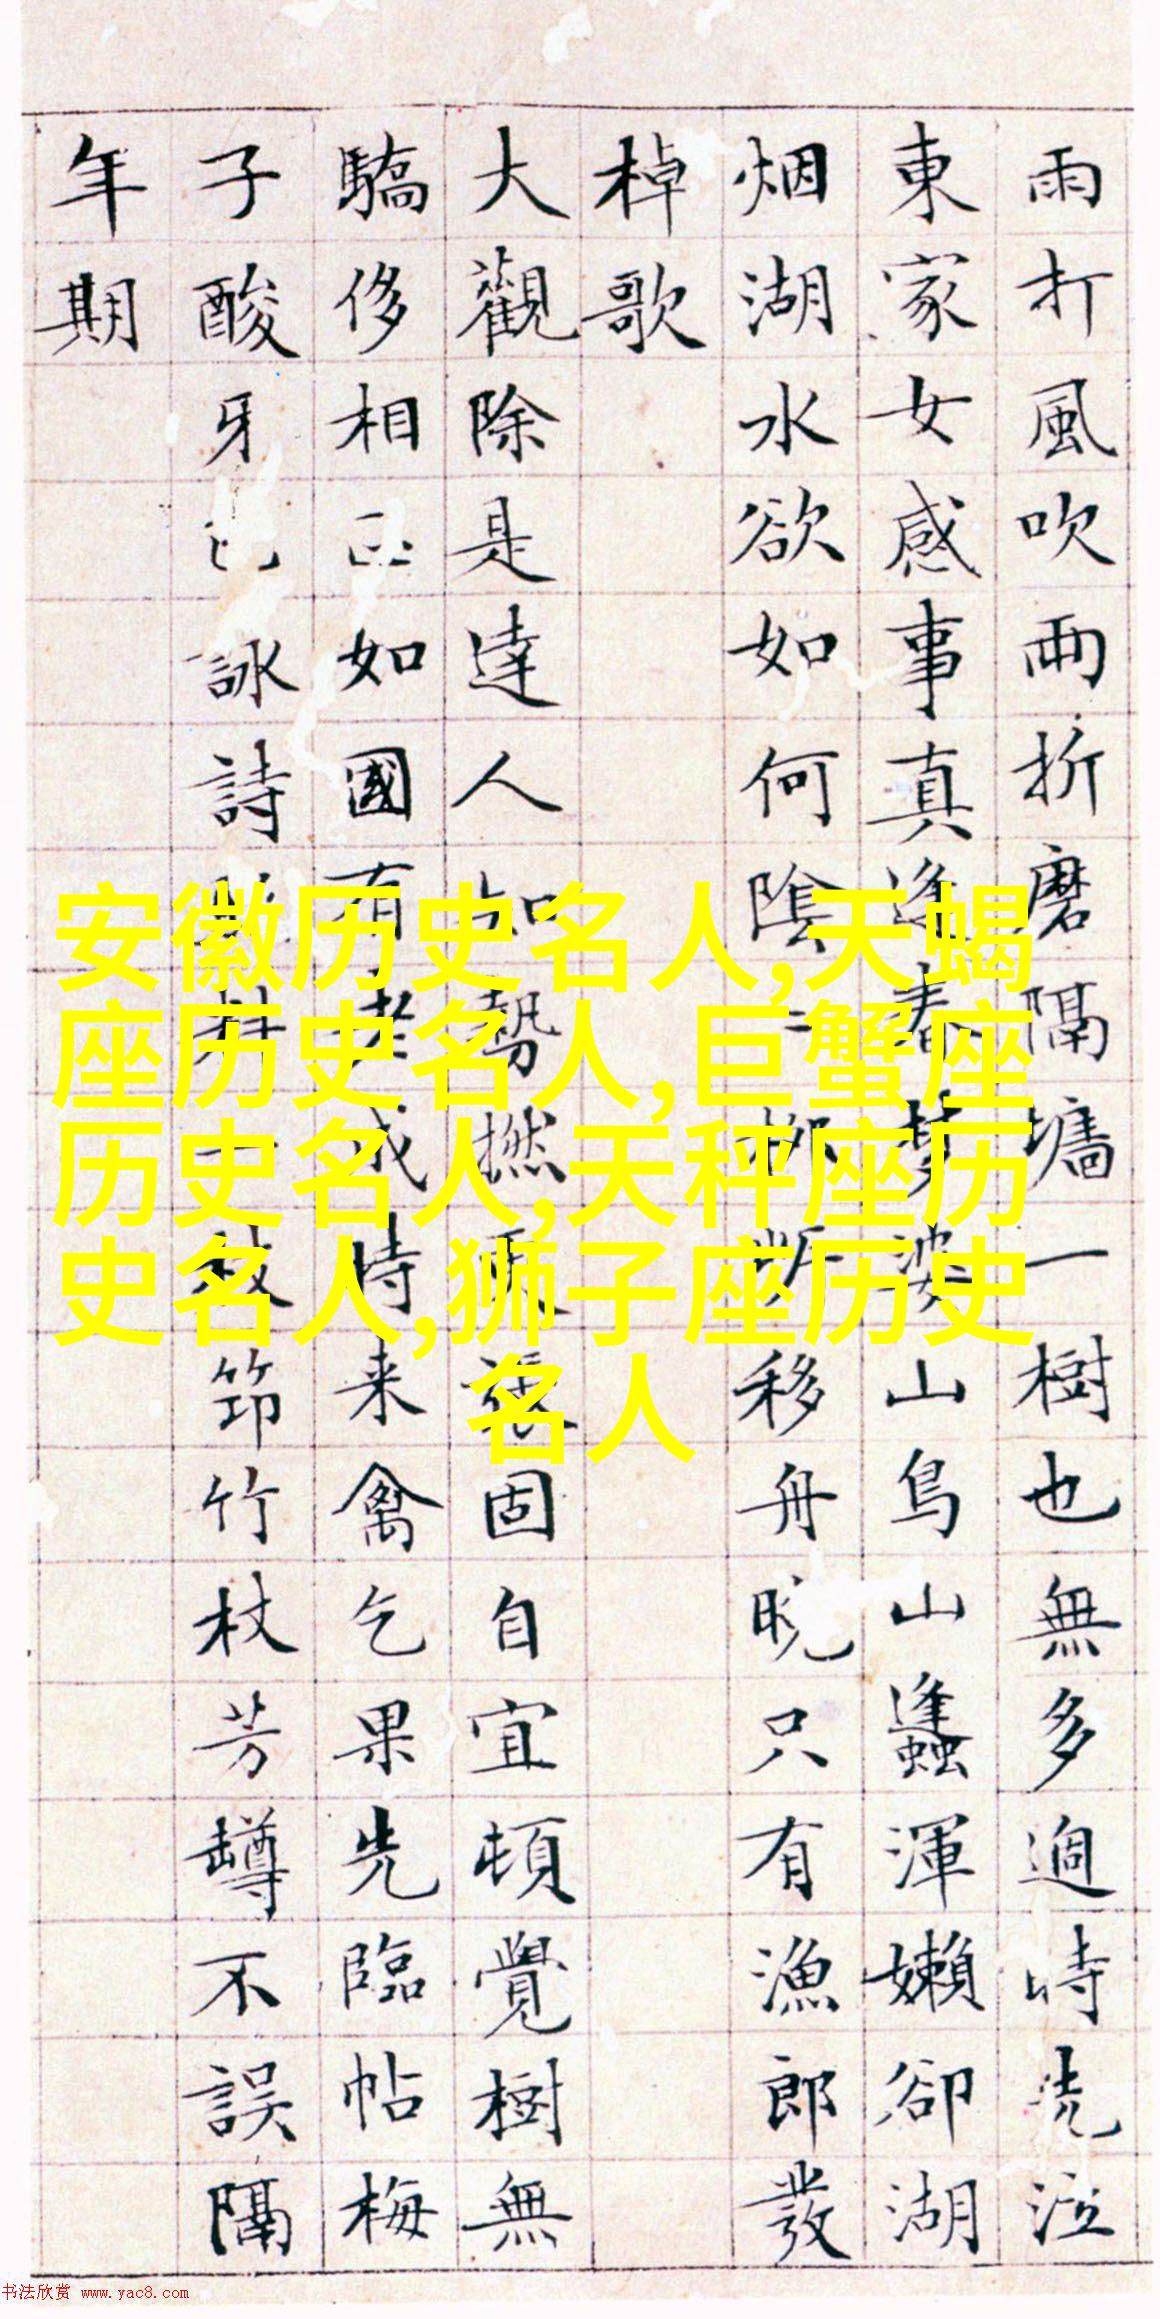 雨打風吹雨折磨隔墻一樹也無多過時洗泣
東家女感事真逢春夢婆山鳥山蠭渾嬾卻湖
烟湖水欲如何陰移舟晚只有漁郎發
棹歌
大觀除是達人知勢撚張固自宜頓覺樹無
驕侈相如國有老成時来禽乞果先臨帖梅
子酸牙詠詩枝笻竹杖芳罇不誤隔
年期
安徽历史名人,天蝎
座历史名人,巨蟹座
历史名人,天秤座历
史名人,狮子座历史
名人
书法欣赏 www.yac8.com